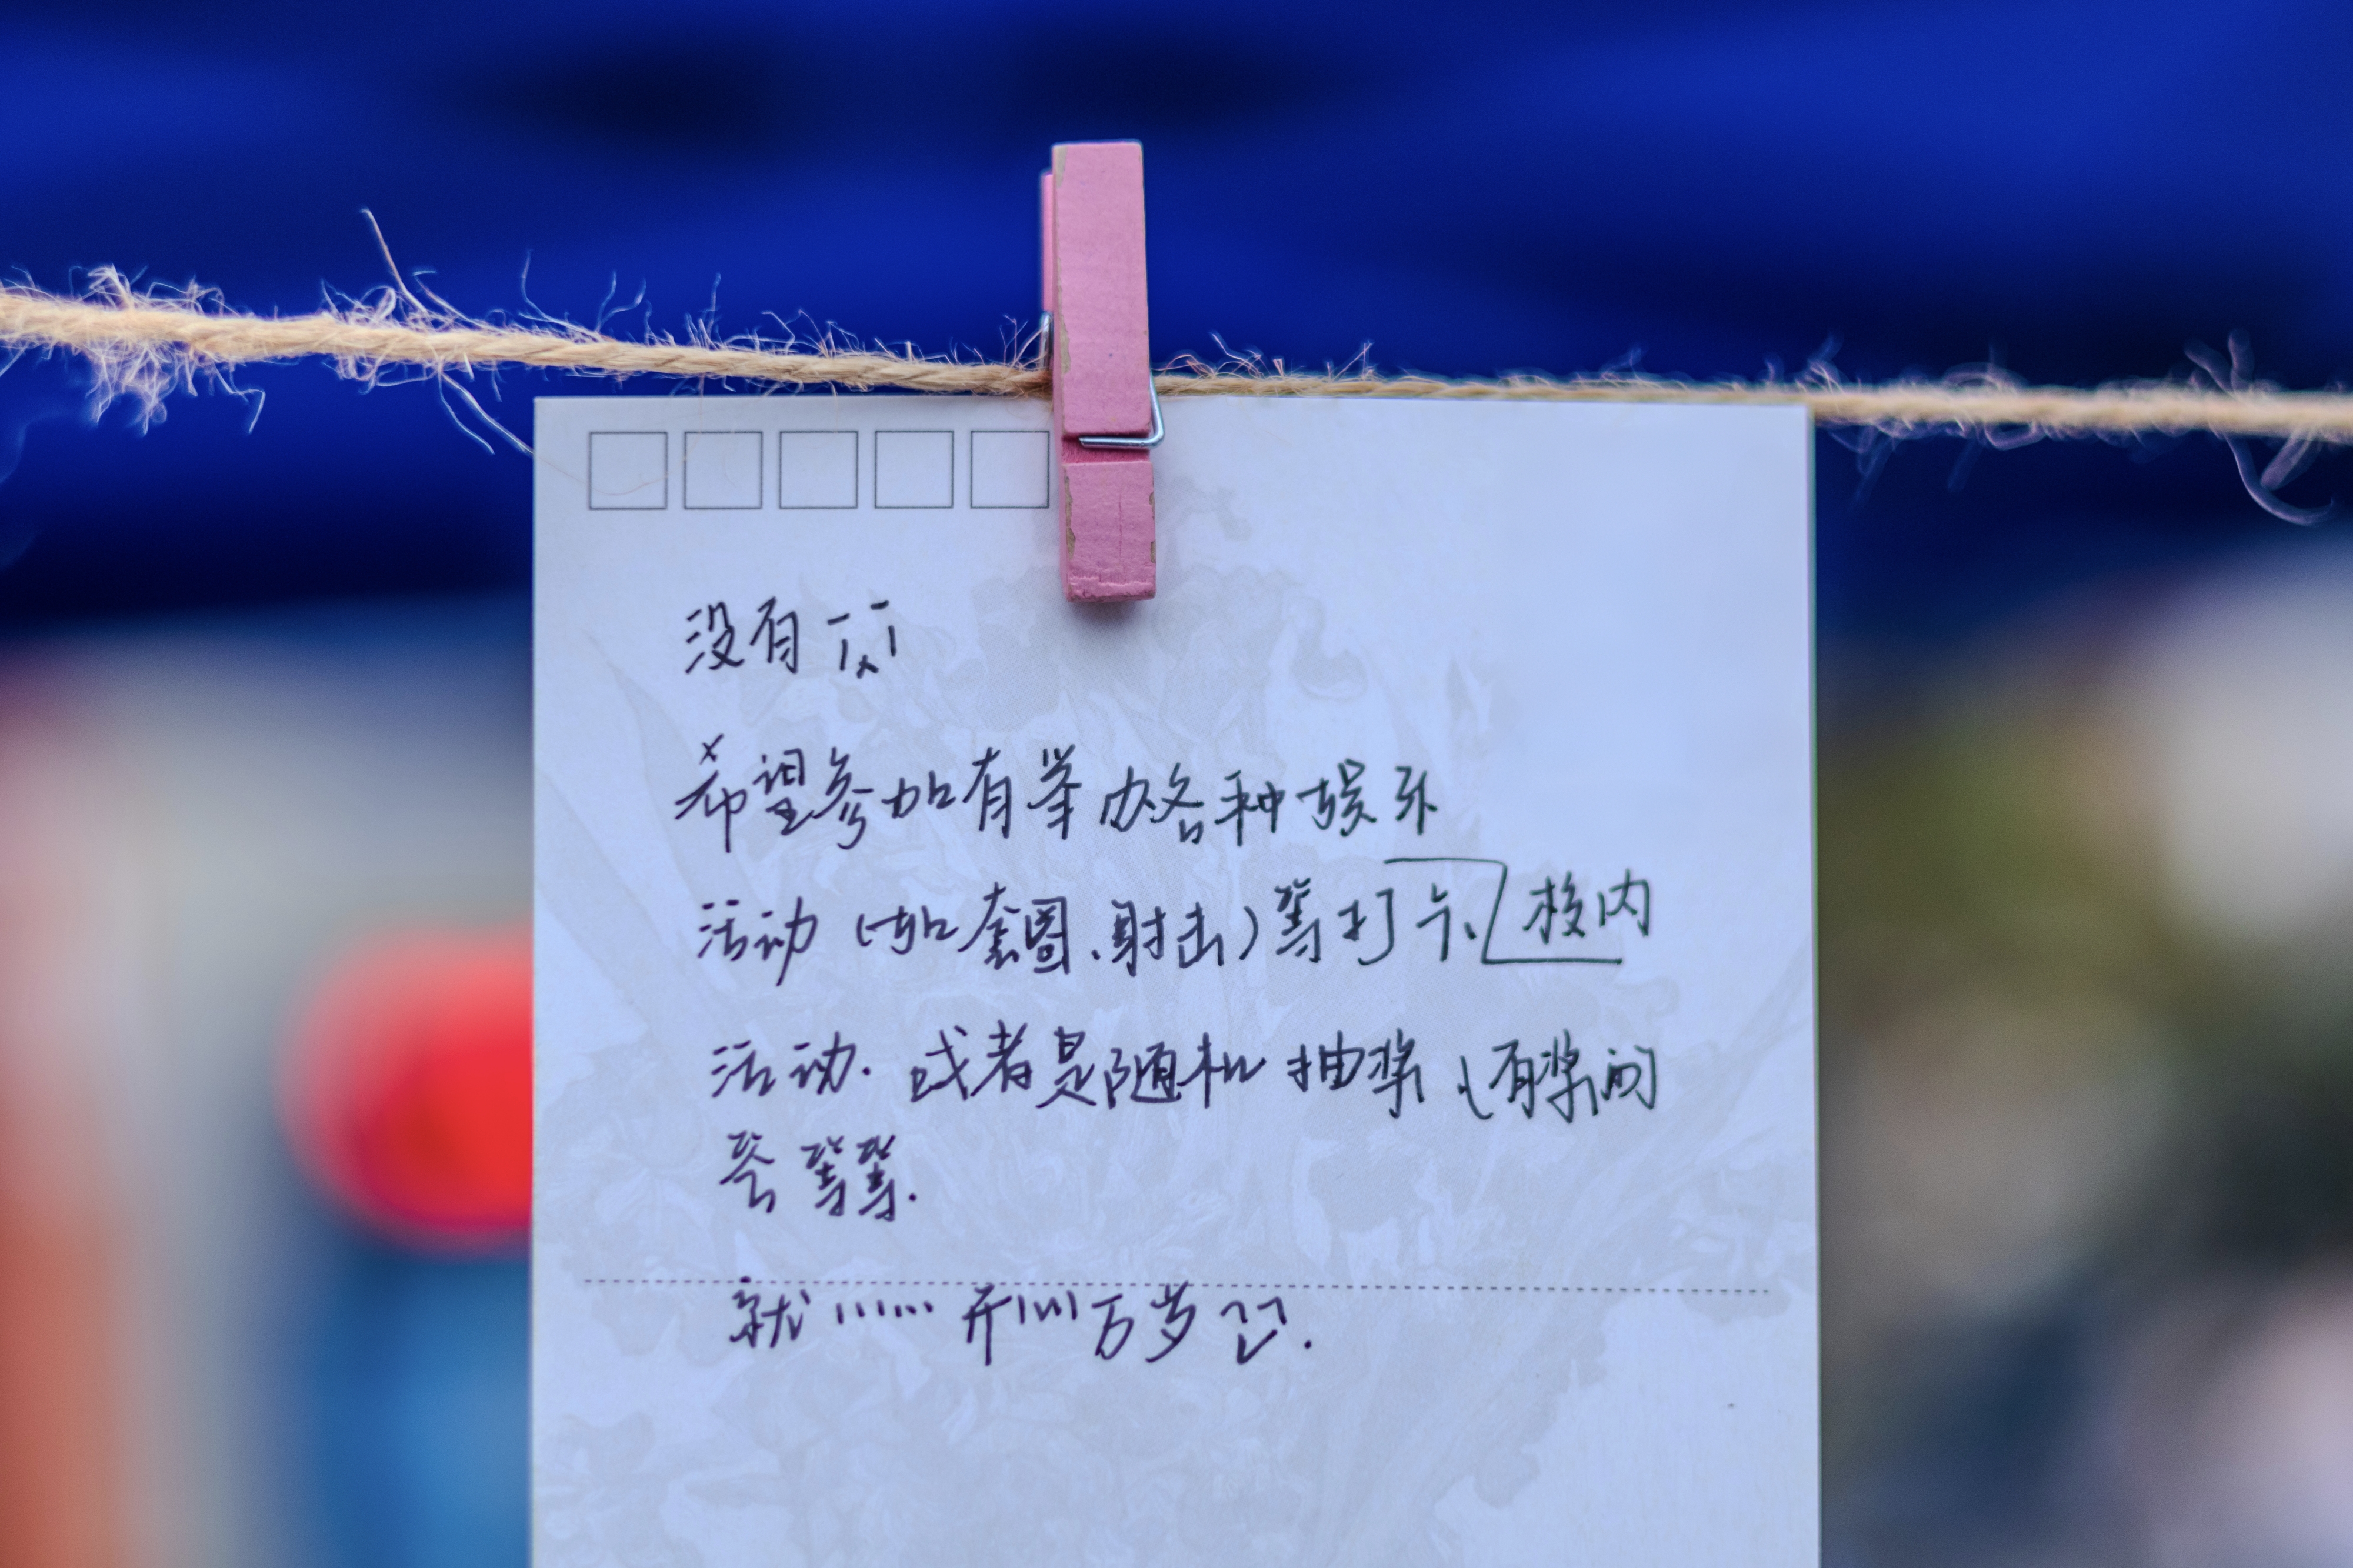 没有 T_T
希望参加有举办各种娱乐
活动（如套圈、射击）等打卡 校内
活动. 或者是随机抽奖（有奖的
等等.
就…… 开川万岁